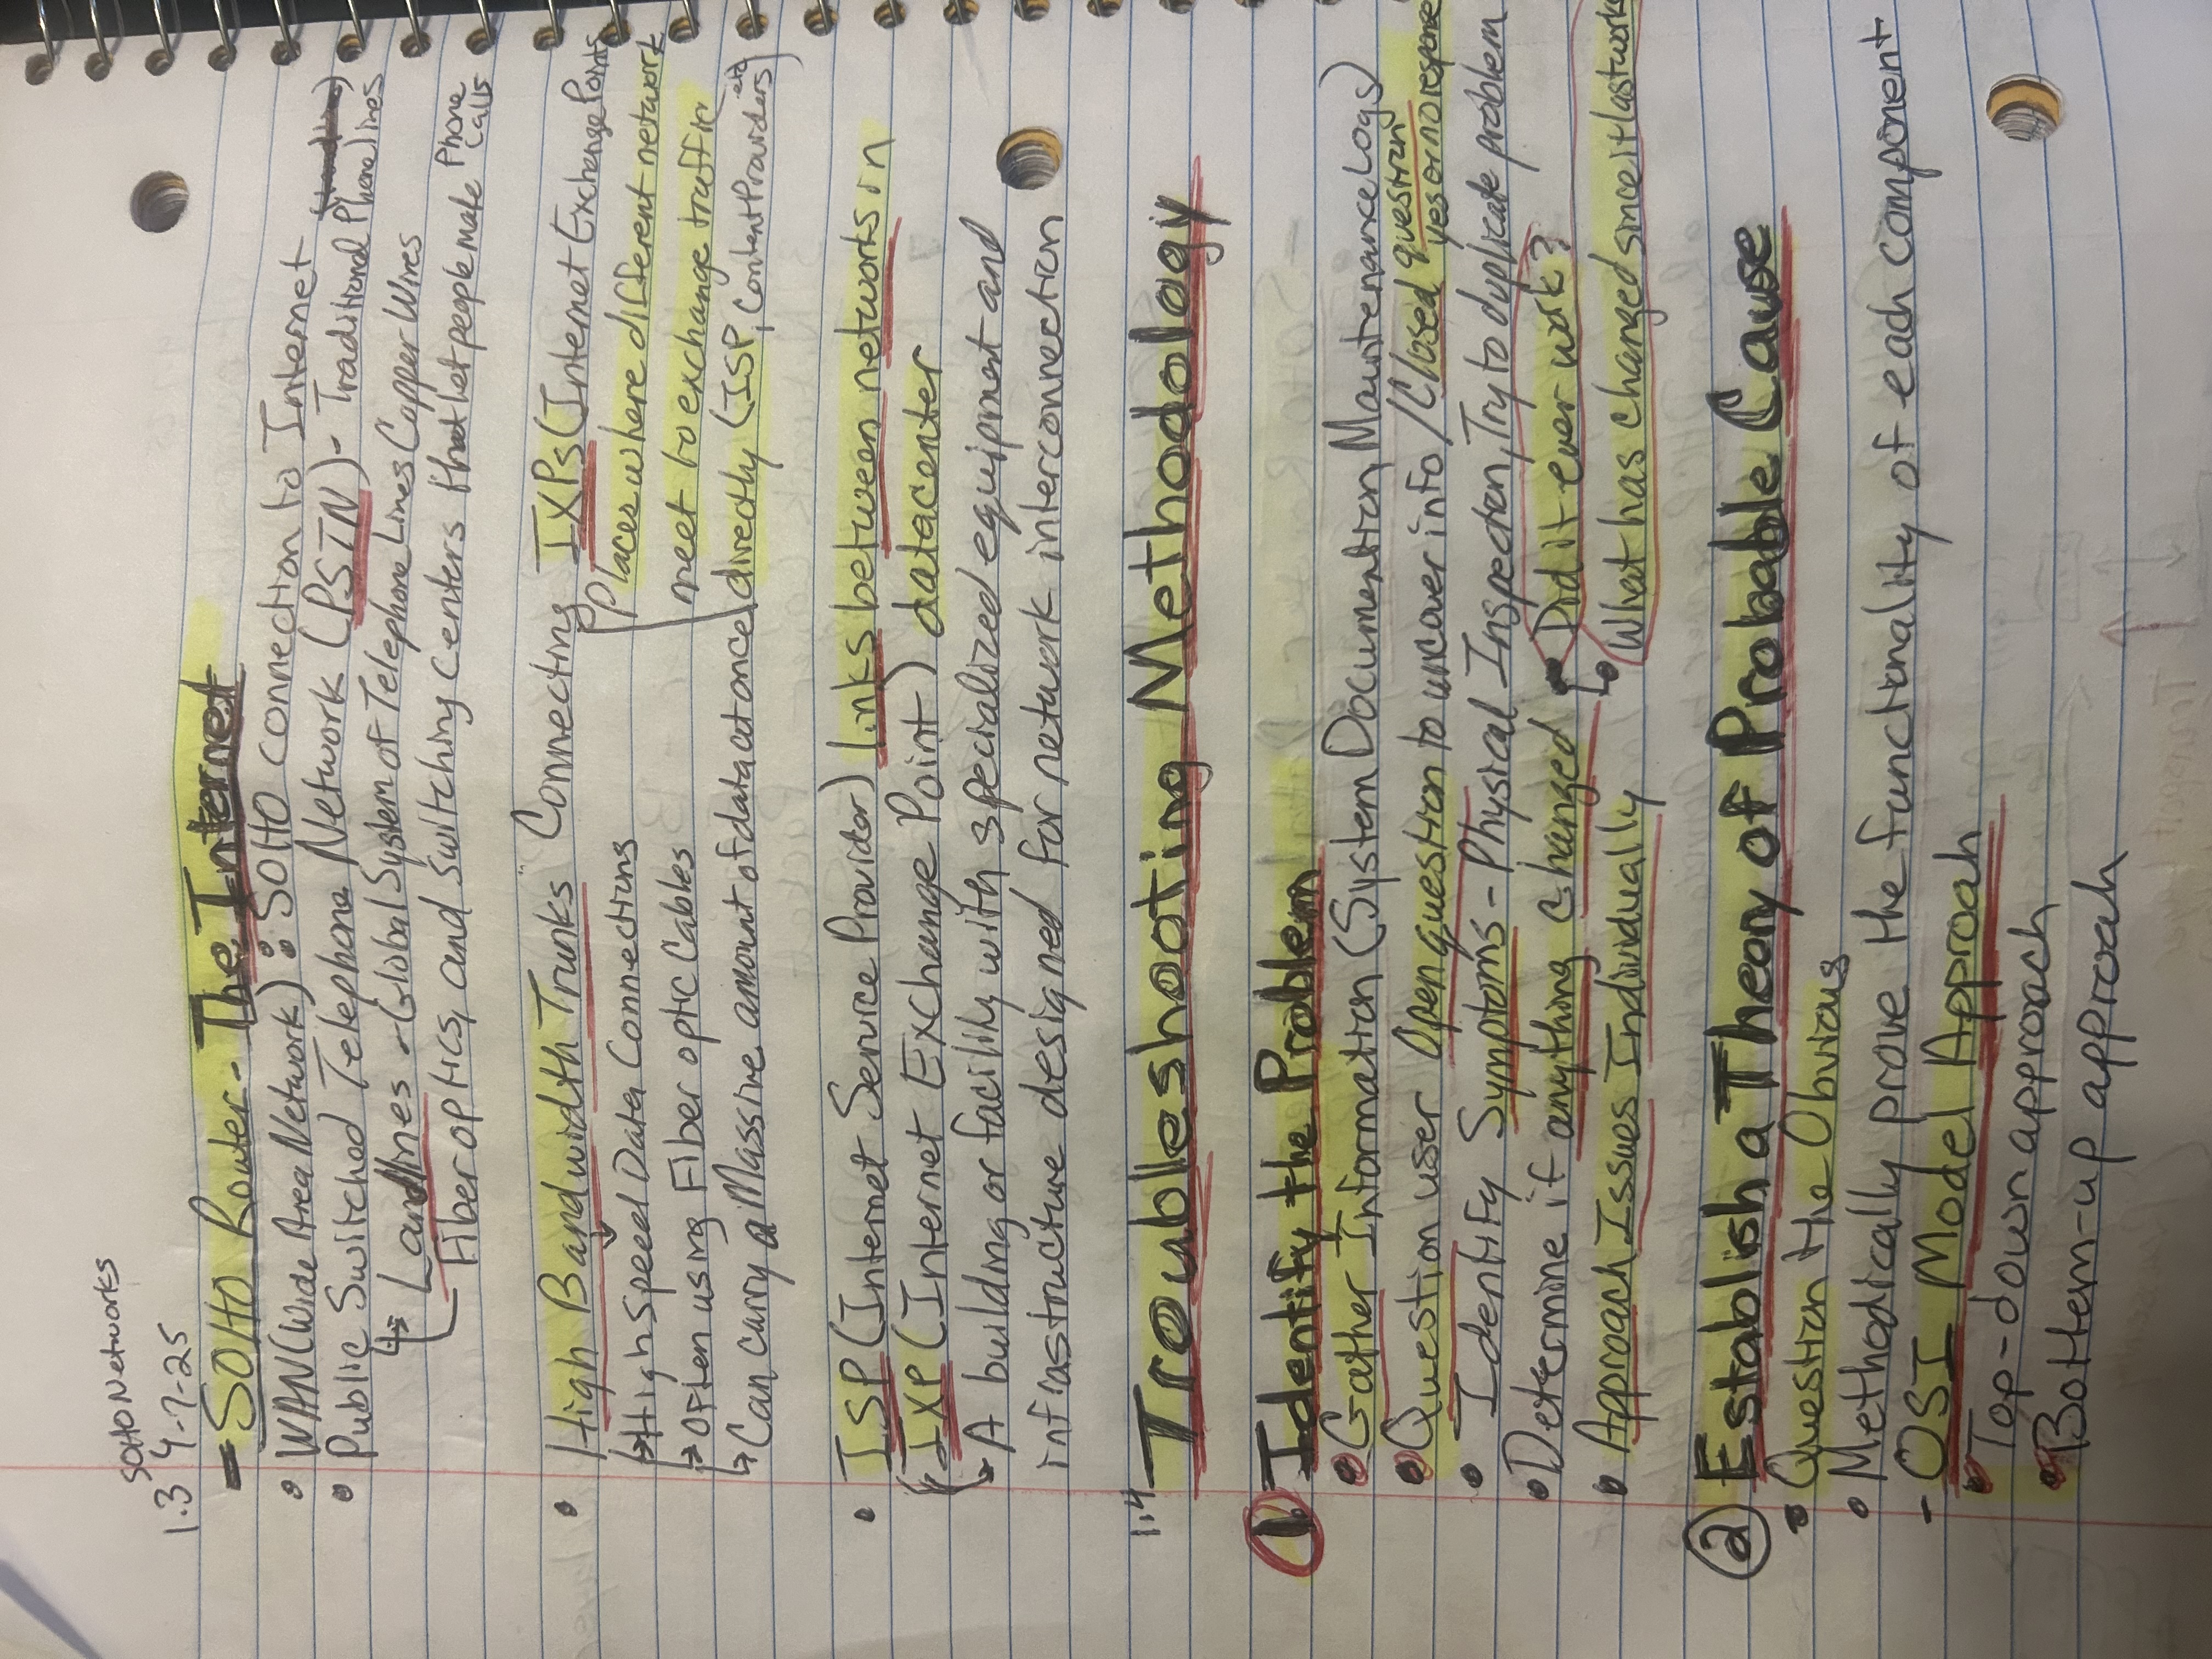 SOHO Networks
1.3 4-7-25
- SOHO Router - The Internet
• WAN (Wide Area Network): SOHO connection to Internet
• Public Switched Telephone Network (PSTN) - Traditional Phone lines
Landlines - Global System of Telephone Lines Copper Wires
Fiber optics, and switching centers that let people make Phone Calls
• High Bandwidth Trunks" Connecting IXPs (Internet Exchange Points
↳ High Speed Data Connections
Places where different network
↳ Often using Fiber optic Cables
meet to exchange traffic
↳ Can carry a Massive amount of data at once
directly (ISP, Content Providers etc)
• ISP (Internet Service Provider) links between networks in
IXP (Internet Exchange Point) datacenter
↳ A building or facility with specialized equipment and
infrastructure designed for network interconnection
1.4 Troubleshooting Methodology
1. Identify the Problem
• Gather Information (System Documention, Maintenance Logs)
• Question user Open question to uncover info / Closed question yes or no response
• Identify Symptoms - Physical Inspection, Try to duplicate problem
• Determine if anything changed • Did it ever work?
• Approach Issues Individually • What has changed since it last work
2 Establish a Theory of Probable Cause
• Question the Obvious
• Methodically prove the functionality of each component
- OSI Model Approah
• Top-down approach
• Bottem-up approah